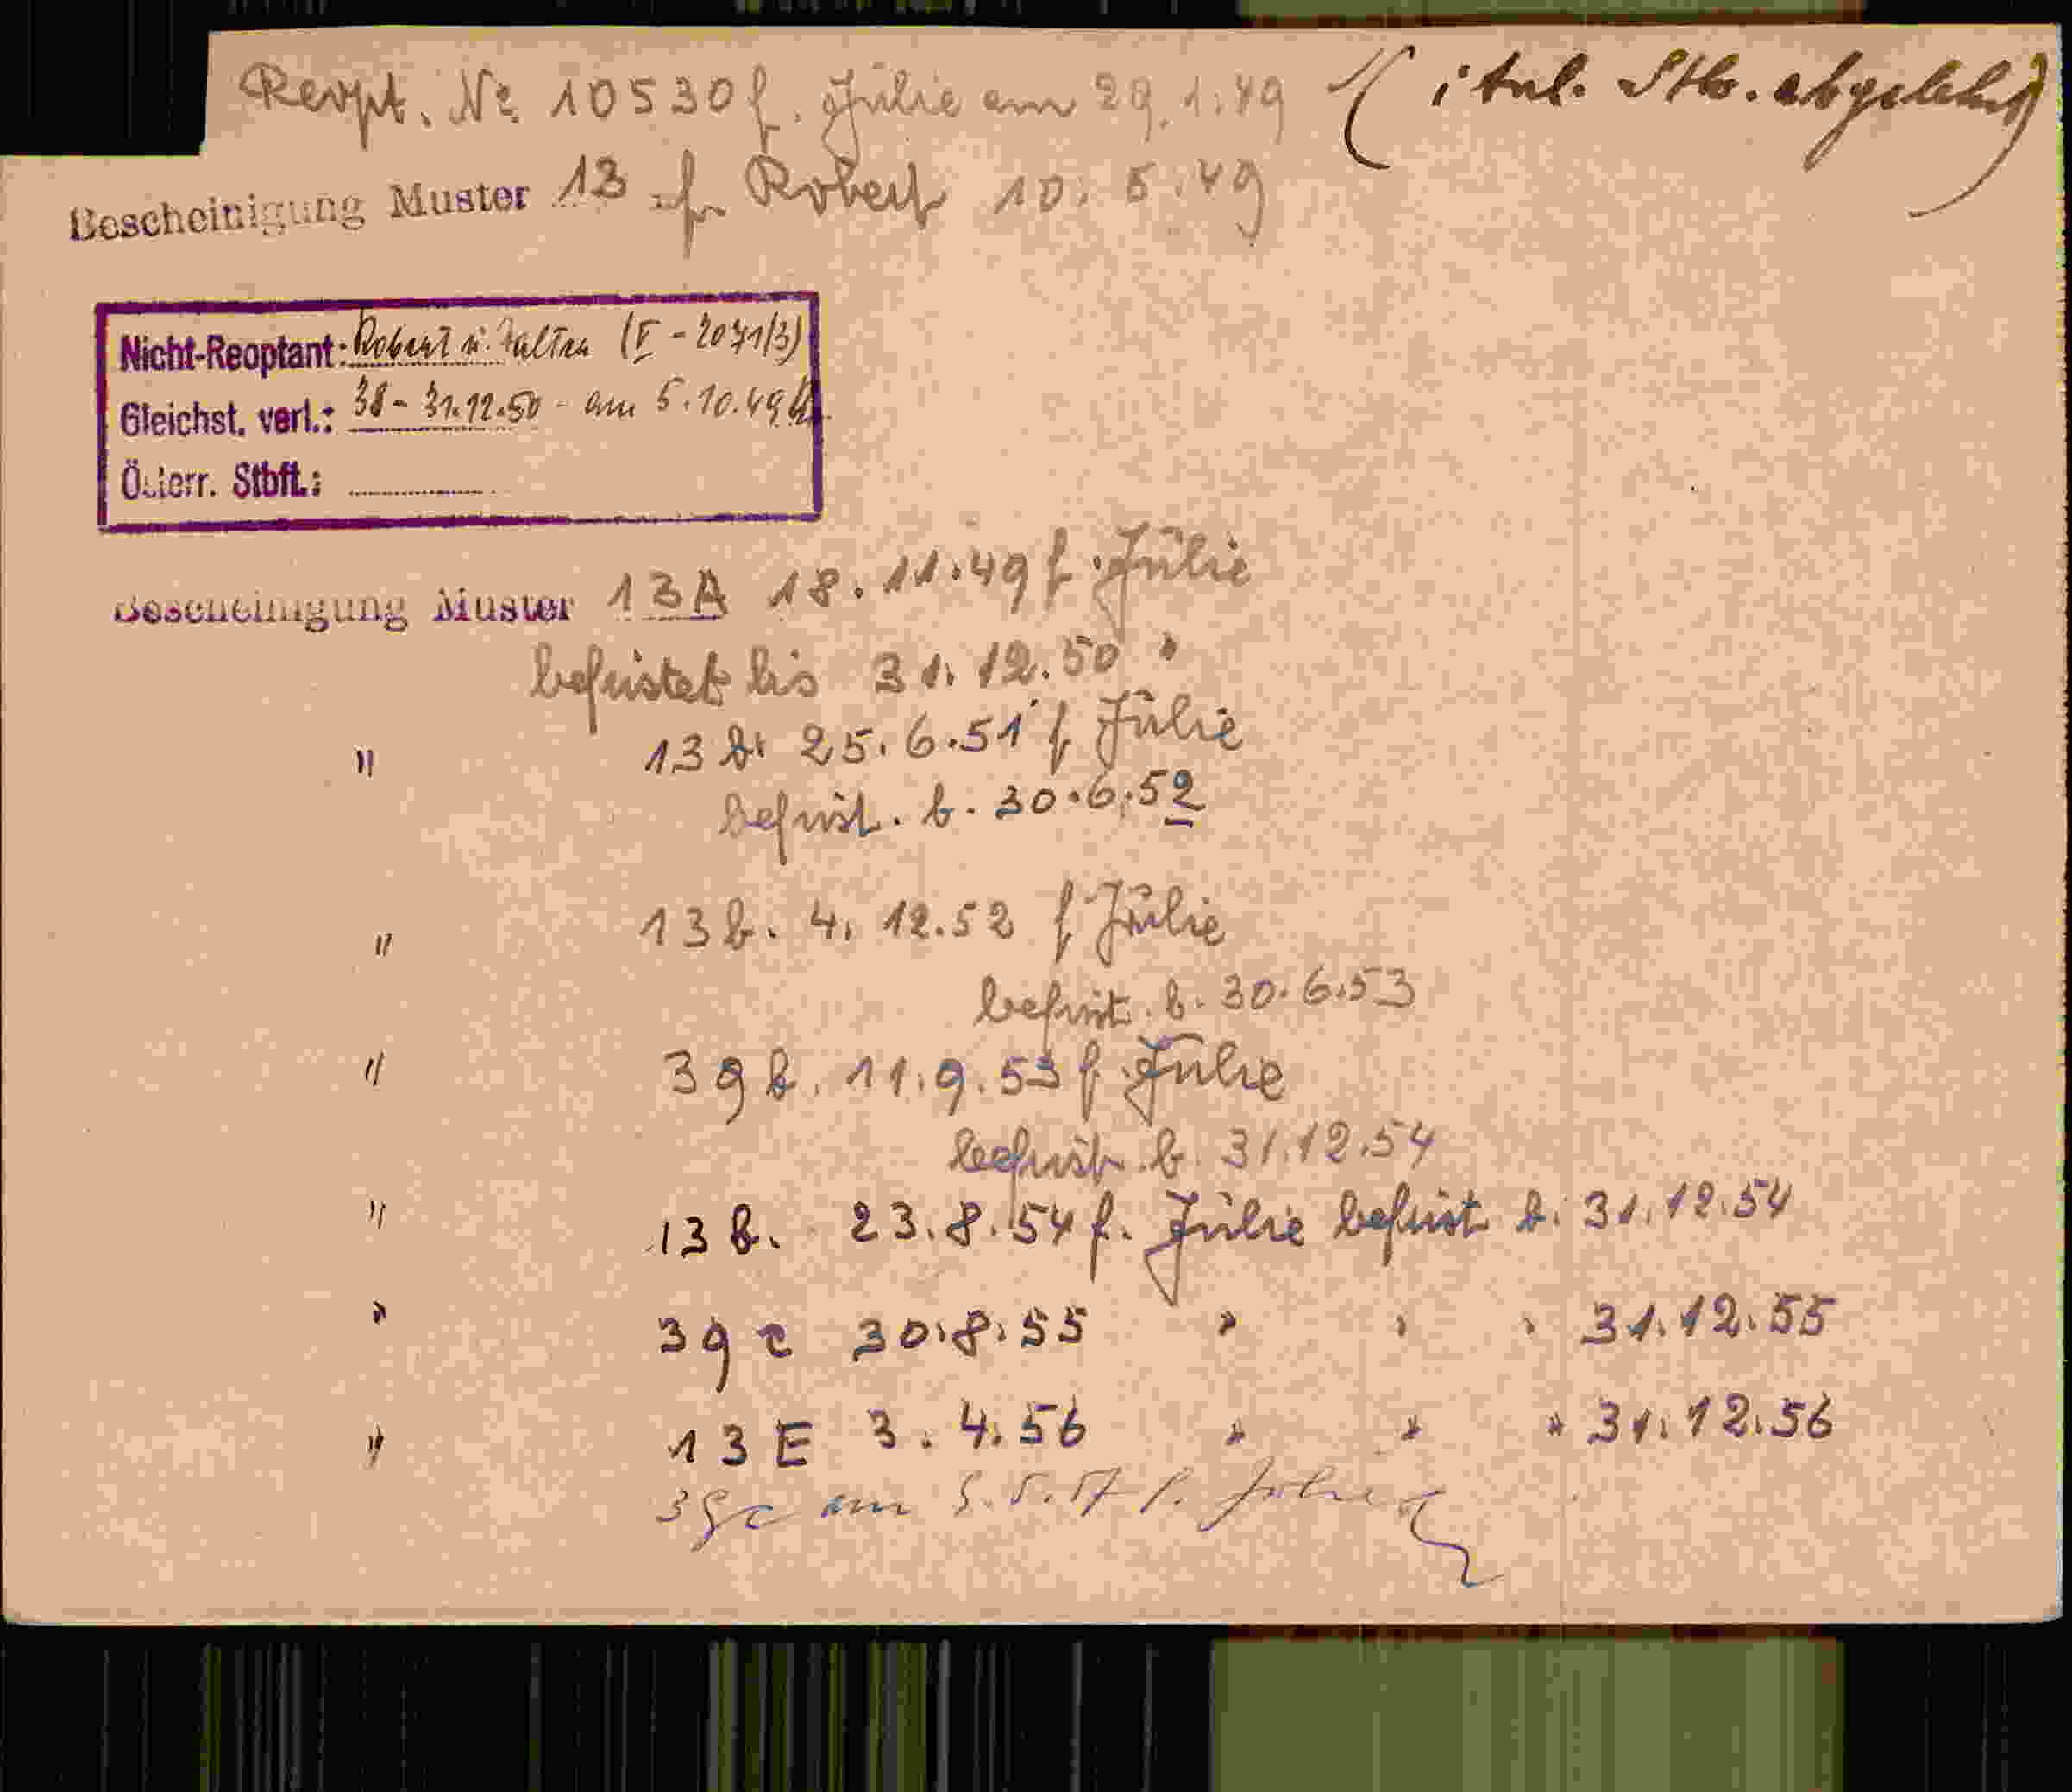 Reopt. No 10530 f. Jülie am 29.1.49 (ital. Stb. abgelehnt)
Bescheinigung Muster 13 f. Robert 10.5.49
Nicht-Reoptant: Robert u. (V - 2071/3)
Gleichst. verl.: 38 - 31.12.50 - am 5.10.49
Österr. Stbft.:
Bescheinigung Muster 13A 18.11.49 f. Jülie
befristet bis 31.12.50 "
" 13 b. 25.6.51 f Jülie
befrist. b. 30.6.52
" 13 b. 4.12.52 f Jülie
befrist. b. 30.6.53
" 39 b. 11.9.53 f. Jülie
befrist. b. 31.12.54
" 13 b. 23.8.54 f. Jülie befrist b. 31.12.54
" 39 c 30.8.55 " " " 31.12.55
" 13 E 3.4.56 " " " 31.12.56
39c am 5.5.57 f. Julie